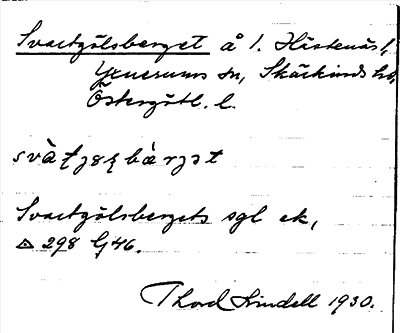 Svartgölsberget å 1. Hästenäs,
Yxnerums sn, Skärkinds hd,
Östergötl. l.
Svartgölsbergets sgl ek,
△ 298 Gj46.
Thord Lindell 1930.